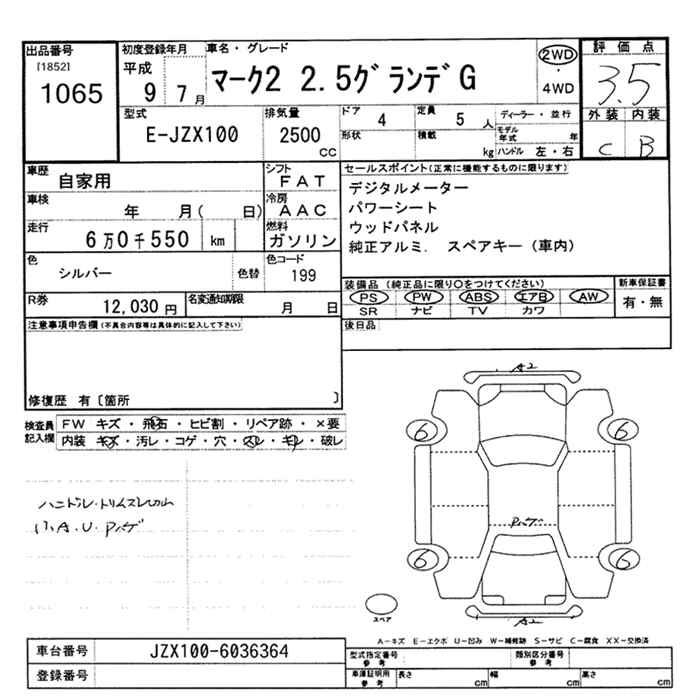 出品番号
[1852]
1065
初度登録年月
平成
9 7月
車名・グレード
マーク2 2.5グランデG
2WD
・
4WD
評価点
3.5
外装 内装
C B
型式
E-JZX100
排気量
2500
CC
ドア 4
形状
定員 5 人
積載 kg
ディーラー・並行
モデル年式 年
ハンドル 左・右
車歴
自家用
シフト
FAT
車検
年 月( 日)
冷房
AAC
走行
6万0千550 km
燃料
ガソリン
色
シルバー
色替
色コード
199
R券
12,030円
名変通知期限
月 日
セールスポイント(正常に機能するものに限ります)
デジタルメーター
パワーシート
ウッドパネル
純正アルミ. スペアキー(車内)
装備品(純正品に限り○をつけてください)
PS PW ABS エアB AW
SR ナビ TV カワ
新車保証書
有・無
後日品
注意事項申告欄(不具合内容等は具体的に記入して下さい)
修復歴 有〔箇所 〕
検査員記入欄
FW キズ・飛石・ヒビ割・リペア跡・×要
内装 キズ・汚レ・コゲ・穴・スレ・キレ・破レ
A2
6 6
6 6
A2
スペア
A-キズ E-エクボ U-凹み W-補修跡 S-サビ C-腐食 XX-交換済
車台番号
JZX100-6036364
登録番号
型式指定番号
参考
類別区分番号
参考
車庫証明用
参考
長さ cm
幅 cm
高さ cm